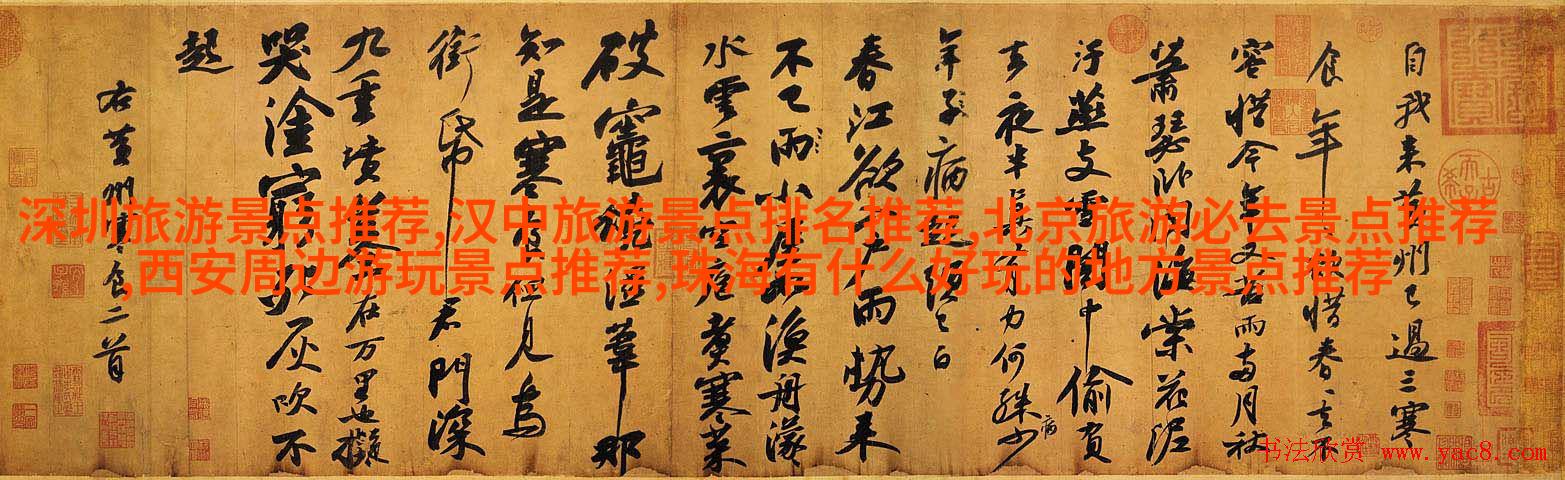 自我來黃州已過三寒
食年〻欲惜春〻去不
容惜今年又苦雨兩月秋
蕭瑟卧聞海棠花泥
汙燕支雪闇中偷負
去夜半真有力何殊少
病
年子病起頭已白
春江欲入戶雨勢來
不已雨小屋如漁舟濛
水雲裏空庖煮寒菜
破竈燒濕葦那
知是寒食但見烏
銜帋君門深
九重墳墓在万里也擬
哭塗窮死灰吹不
起
右黃州寒食二首
深圳旅游景点推荐,汉中旅游景点排名推荐,北京旅游必去景点推荐
,西安周边游玩景点推荐,珠海有什么好玩的地方景点推荐
书法欣赏 www.yac8.com